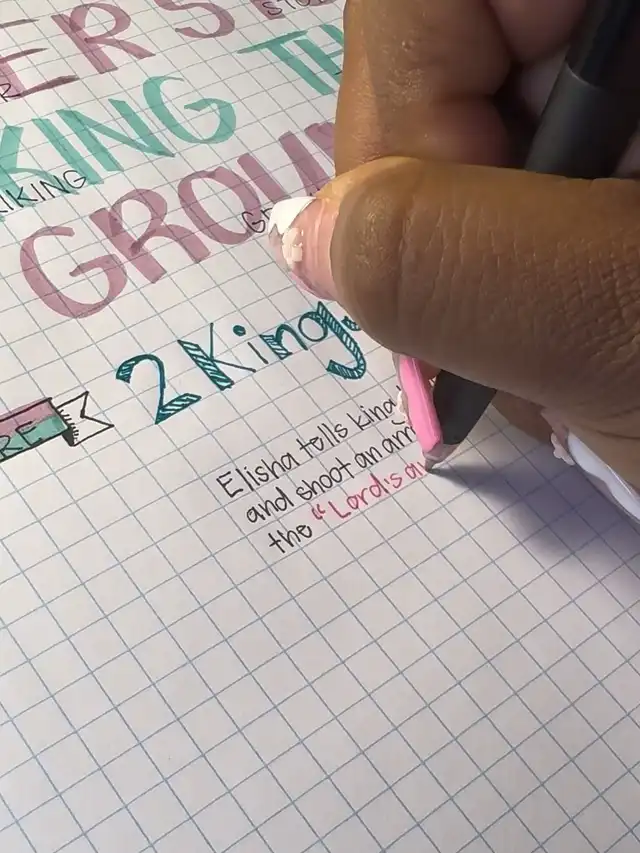 ERS
KING TH
KIKING
GROUN
2 Kings
RE
Elisha tells king
and shoot an arr
the "Lord's a